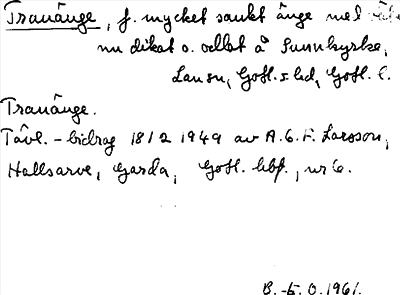 Tranänge, f. mycket sankt änge med
nu dikat o. odlat å Sunnkyrke,
Lau sn, Gotl. s. hd, Gotl. l.
Tranänge.
Tävl.-bidrag 18/2 1949 av A.G.F. Larsson,
Hallsarve, Garda, Gotl. hbf., nr 6.
B. 0.1961.